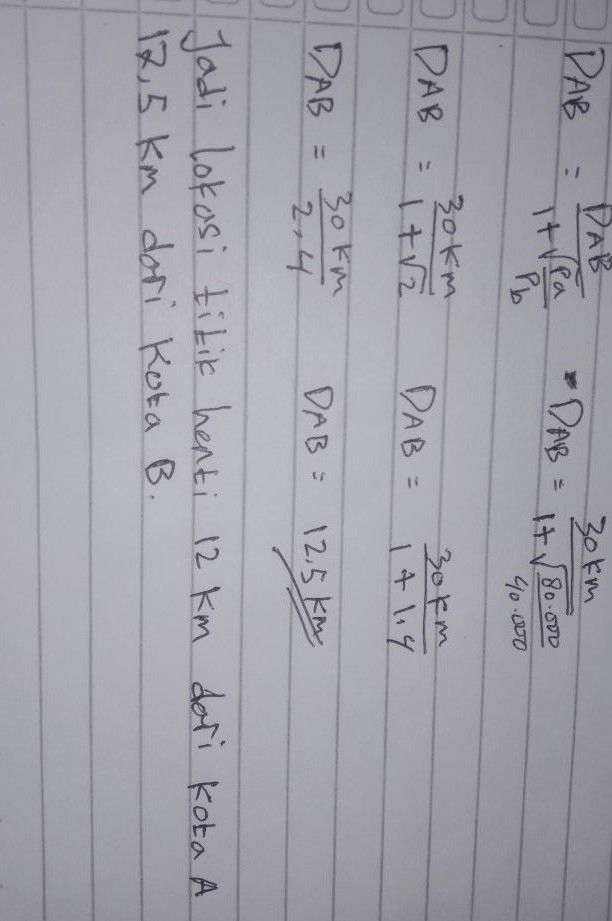 DAB = DAB / 1+√Pa/Pb DAB = 30 km / 1+√80.000/40.000
DAB = 30 km / 1+√2 DAB = 30 km / 1+1,4
DAB = 30 km / 2,4 DAB = 12,5 km
Jadi lokasi titik henti 12 km dari kota A
12,5 km dari kota B.